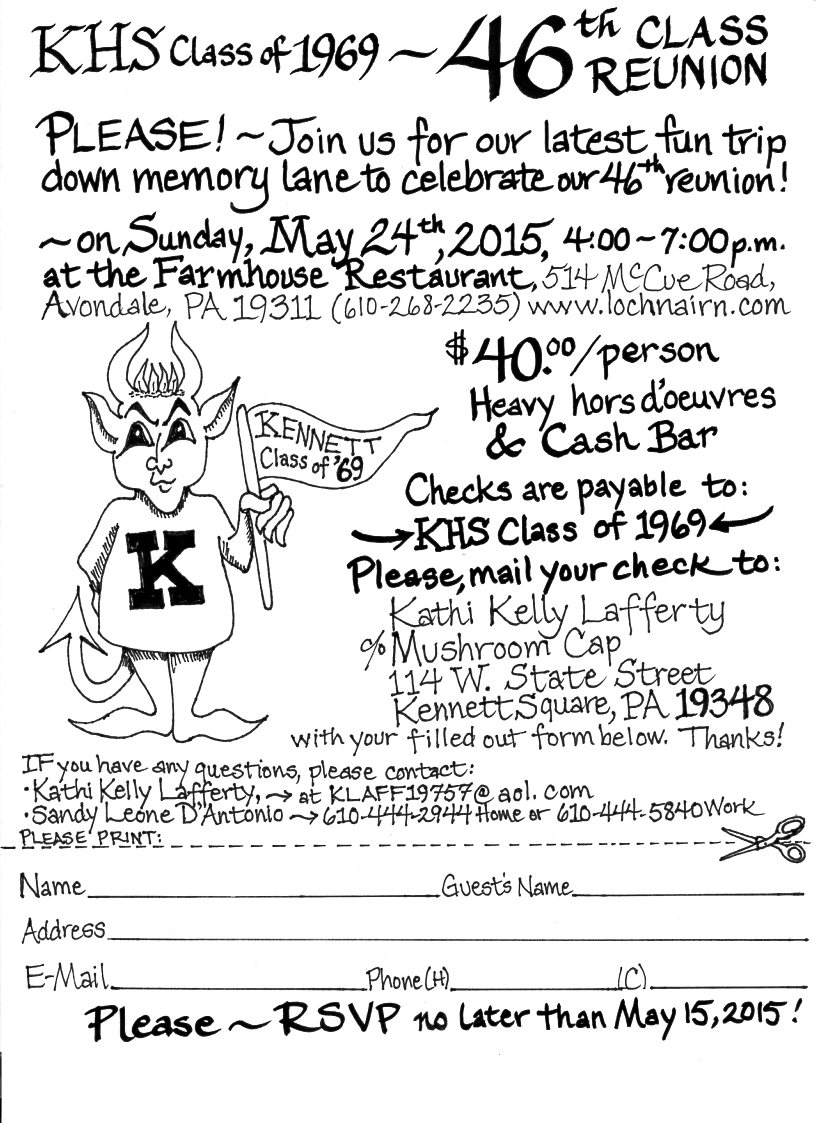 KHS Class of 1969 ~ 46th CLASS REUNION
PLEASE! ~ Join us for our latest fun trip
down memory lane to celebrate our 46th reunion!
~ on Sunday, May 24th, 2015, 4:00 ~ 7:00 p.m.
at the Farmhouse Restaurant, 514 McCue Road,
Avondale, PA 19311 (610-268-2235) www.lochnairn.com
$40.00/person
Heavy hors d'oeuvres
& Cash Bar
KENNETT
Class of '69
K
Checks are payable to:
KHS Class of 1969
Please, mail your check to:
Kathi Kelly Lafferty
c/o Mushroom Cap
114 W. State Street
Kennett Square, PA 19348
with your filled out form below. Thanks!
IF you have any questions, please contact:
• Kathi Kelly Lafferty, → at KLAFF19757@aol.com
• Sandy Leone D'Antonio → 610-444-2944 Home or 610-444-5840 Work
PLEASE PRINT:
Name Guest's Name
Address
E-Mail Phone (H) (C)
Please ~ RSVP no later than May 15, 2015!